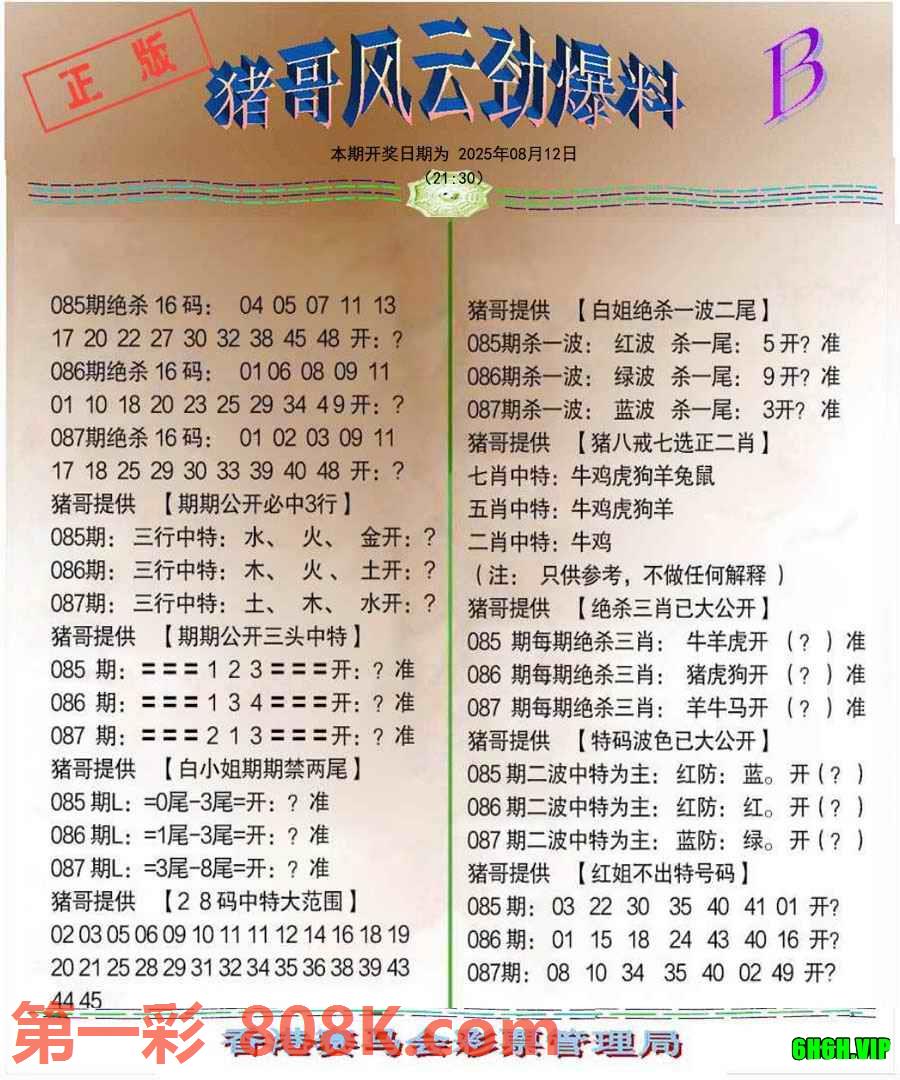 正版
猪哥风云劲爆料
B
本期开奖日期为 2025年08月12日
(21:30)
085期绝杀 16 码： 04 05 07 11 13
17 20 22 27 30 32 38 45 48 开：?
086期绝杀 16 码： 01 06 08 09 11
01 10 18 20 23 25 29 34 49 开：?
087期绝杀 16 码： 01 02 03 09 11
17 18 25 29 30 33 39 40 48 开：?
猪哥提供 【期期公开必中3行】
085期： 三行中特： 水、 火、 金开：?
086期： 三行中特： 木、 火、 土开：?
087期： 三行中特： 土、 木、 水开：?
猪哥提供 【期期公开三头中特】
085 期：===1 2 3===开：? 准
086 期：===1 3 4===开：? 准
087 期：===2 1 3===开：? 准
猪哥提供 【白小姐期期禁两尾】
085 期L：=0尾-3尾=开：? 准
086 期L：=1尾-3尾=开：? 准
087 期L：=3尾-8尾=开：? 准
猪哥提供 【2 8 码中特大范围】
02 03 05 06 09 10 11 11 12 14 16 18 19
20 21 25 28 29 31 32 34 35 36 38 39 43
44 45
猪哥提供 【白姐绝杀一波二尾】
085期杀一波： 红波 杀一尾： 5 开? 准
086期杀一波： 绿波 杀一尾： 9 开? 准
087期杀一波： 蓝波 杀一尾： 3开? 准
猪哥提供 【猪八戒七选正二肖】
七肖中特：牛鸡虎狗羊兔鼠
五肖中特：牛鸡虎狗羊
二肖中特：牛鸡
（注： 只供参考，不做任何解释 ）
猪哥提供 【绝杀三肖已大公开】
085 期每期绝杀三肖： 牛羊虎开 （? ）准
086 期每期绝杀三肖： 猪虎狗开 （? ）准
087 期每期绝杀三肖： 羊牛马开 （? ）准
猪哥提供 【特码波色已大公开】
085 期二波中特为主：红防：蓝。 开（? ）
086 期二波中特为主：红防：红。 开（? ）
087 期二波中特为主：蓝防：绿。 开（? ）
猪哥提供 【红姐不出特号码】
085 期： 03 22 30 35 40 41 01 开?
086 期： 01 15 18 24 43 40 16 开?
087期： 08 10 34 35 40 02 49 开?
第一彩 808K.com
香港赛马会彩票管理局
6H6H.VIP